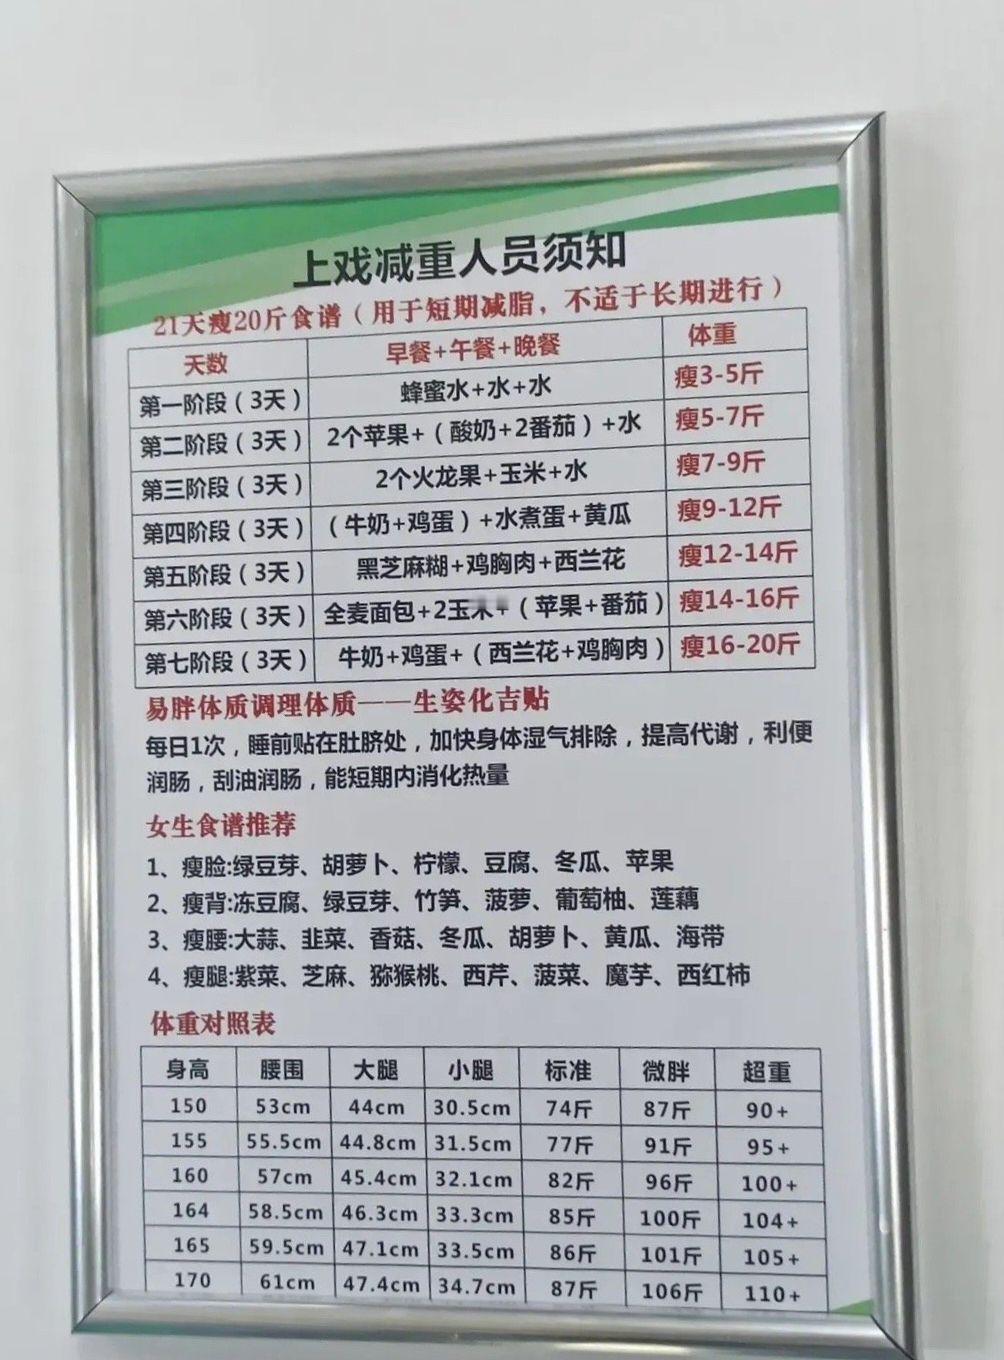 上戏减重人员须知
21天瘦20斤食谱（用于短期减脂，不适于长期进行）
天数 早餐+午餐+晚餐 体重
第一阶段（3天） 蜂蜜水+水+水 瘦3-5斤
第二阶段（3天） 2个苹果+（酸奶+2番茄）+水 瘦5-7斤
第三阶段（3天） 2个火龙果+玉米+水 瘦7-9斤
第四阶段（3天） （牛奶+鸡蛋）+水煮蛋+黄瓜 瘦9-12斤
第五阶段（3天） 黑芝麻糊+鸡胸肉+西兰花 瘦12-14斤
第六阶段（3天） 全麦面包+2玉米+（苹果+番茄） 瘦14-16斤
第七阶段（3天） 牛奶+鸡蛋+（西兰花+鸡胸肉） 瘦16-20斤
易胖体质调理体质——生姿化吉贴
每日1次，睡前贴在肚脐处，加快身体湿气排除，提高代谢，利便
润肠，刮油润肠，能短期内消化热量
女生食谱推荐
1、瘦脸:绿豆芽、胡萝卜、柠檬、豆腐、冬瓜、苹果
2、瘦背:冻豆腐、绿豆芽、竹笋、菠萝、葡萄柚、莲藕
3、瘦腰:大蒜、韭菜、香菇、冬瓜、胡萝卜、黄瓜、海带
4、瘦腿:紫菜、芝麻、猕猴桃、西芹、菠菜、魔芋、西红柿
体重对照表
身高 腰围 大腿 小腿 标准 微胖 超重
150 53cm 44cm 30.5cm 74斤 87斤 90+
155 55.5cm 44.8cm 31.5cm 77斤 91斤 95+
160 57cm 45.4cm 32.1cm 82斤 96斤 100+
164 58.5cm 46.3cm 33.3cm 85斤 100斤 104+
165 59.5cm 47.1cm 33.5cm 86斤 101斤 105+
170 61cm 47.4cm 34.7cm 87斤 106斤 110+